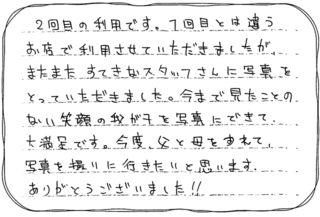 2回目の利用です。1回目とは違う
お店で利用させていただきましたが、
またまた すてきなスタッフさんに写真を
とっていただきました。今まで見たことの
ない笑顔の我が子を写真にできて、
大満足です。今度、父と母をまじえて、
写真を撮りに行きたいと思います。
ありがとうございました!!